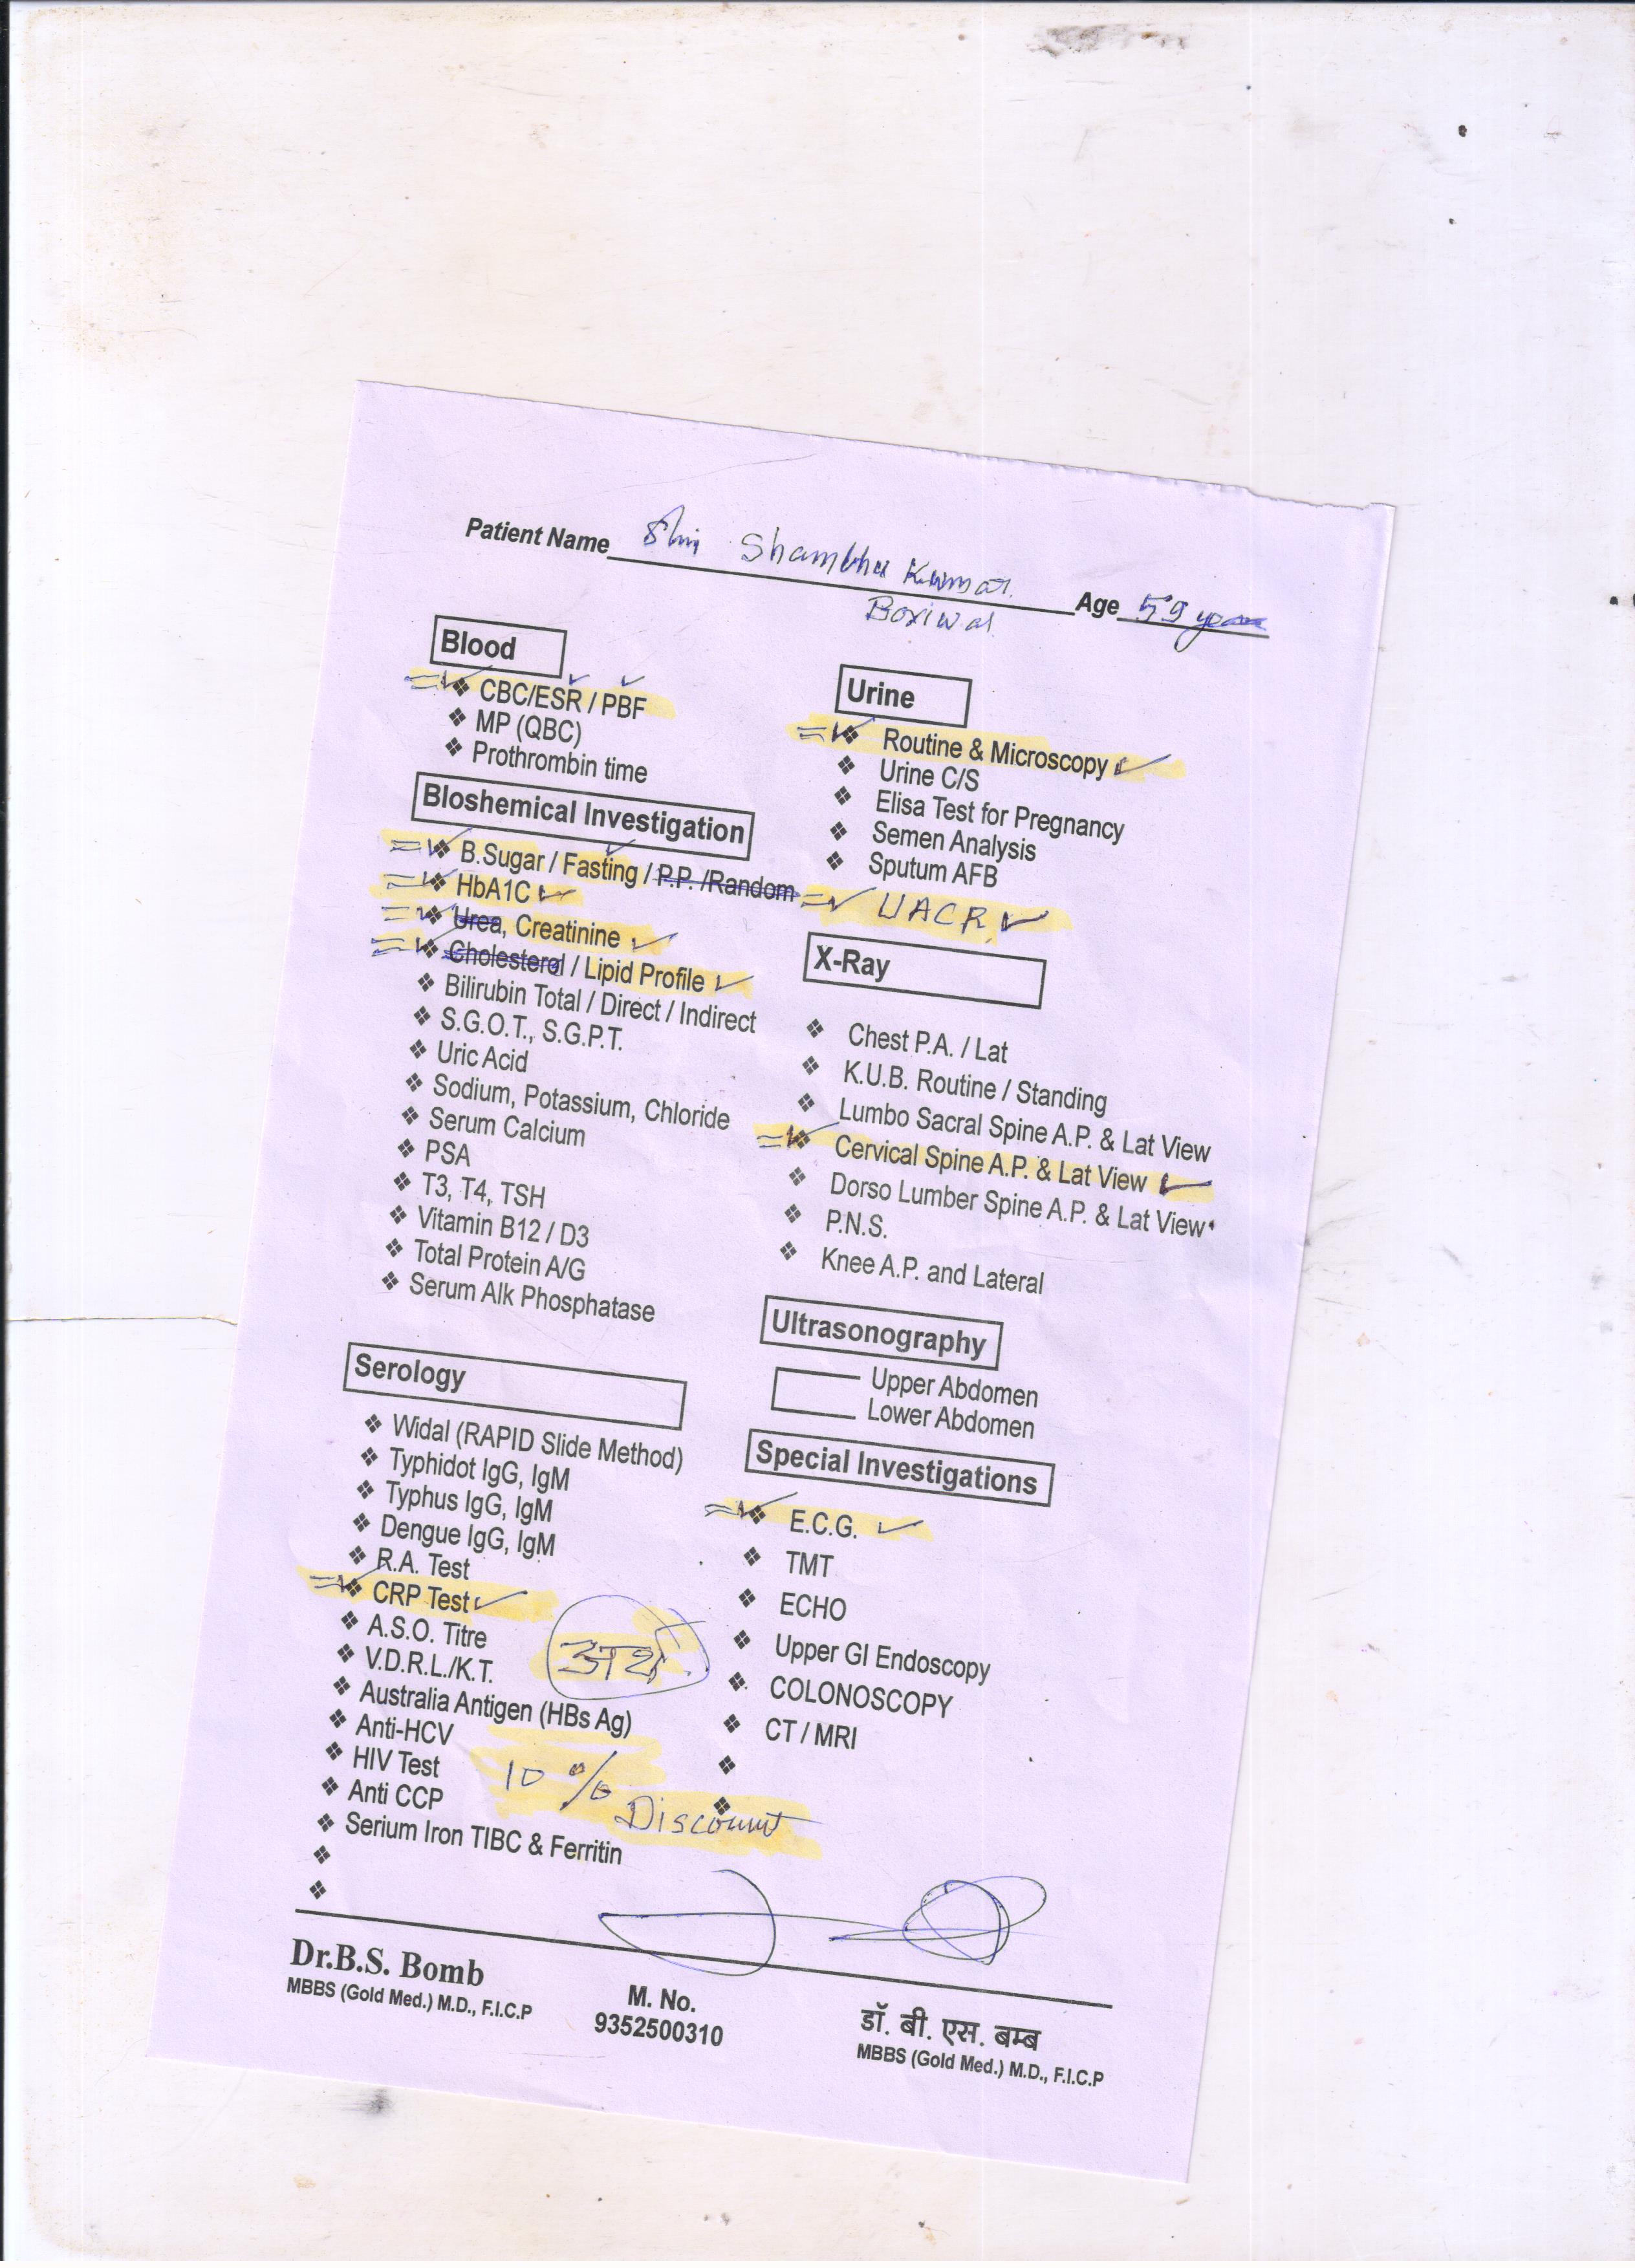 Patient Name Shri Shambhu Kumar Age 59 year
Boriwal
Blood
❖ CBC/ESR / PBF
❖ MP (QBC)
❖ Prothrombin time
Bloshemical Investigation
❖ B.Sugar / Fasting / P.P. /Random
❖ HbA1C
❖ Urea, Creatinine
❖ Cholesterol / Lipid Profile
❖ Bilirubin Total / Direct / Indirect
❖ S.G.O.T., S.G.P.T.
❖ Uric Acid
❖ Sodium, Potassium, Chloride
❖ Serum Calcium
❖ PSA
❖ T3, T4, TSH
❖ Vitamin B12 / D3
❖ Total Protein A/G
❖ Serum Alk Phosphatase
Serology
❖ Widal (RAPID Slide Method)
❖ Typhidot IgG, IgM
❖ Typhus IgG, IgM
❖ Dengue IgG, IgM
❖ R.A. Test
❖ CRP Test
❖ A.S.O. Titre
❖ V.D.R.L./K.T.
❖ Australia Antigen (HBs Ag)
❖ Anti-HCV
❖ HIV Test
❖ Anti CCP
❖ Serium Iron TIBC & Ferritin
Urine
❖ Routine & Microscopy
❖ Urine C/S
❖ Elisa Test for Pregnancy
❖ Semen Analysis
❖ Sputum AFB
UACR
X-Ray
❖ Chest P.A. / Lat
❖ K.U.B. Routine / Standing
❖ Lumbo Sacral Spine A.P. & Lat View
❖ Cervical Spine A.P. & Lat View
❖ Dorso Lumber Spine A.P. & Lat View
❖ P.N.S.
❖ Knee A.P. and Lateral
Ultrasonography
Upper Abdomen
Lower Abdomen
Special Investigations
❖ E.C.G.
❖ TMT
❖ ECHO
❖ Upper GI Endoscopy
❖ COLONOSCOPY
❖ CT / MRI
अर्थ
10 %
Discount
Dr.B.S. Bomb
MBBS (Gold Med.) M.D., F.I.C.P
M. No.
9352500310
डॉ. बी. एस. बम्ब
MBBS (Gold Med.) M.D., F.I.C.P